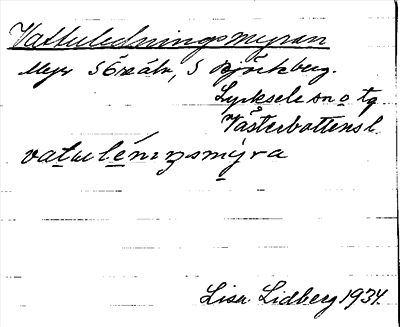 Vattuledningsmyran
Myr S Öreälv, S Björkberg.
Lycksele sn o tg
Västerbottens l.
vatuléniŋsmýra
Lisa Lidberg 1934.